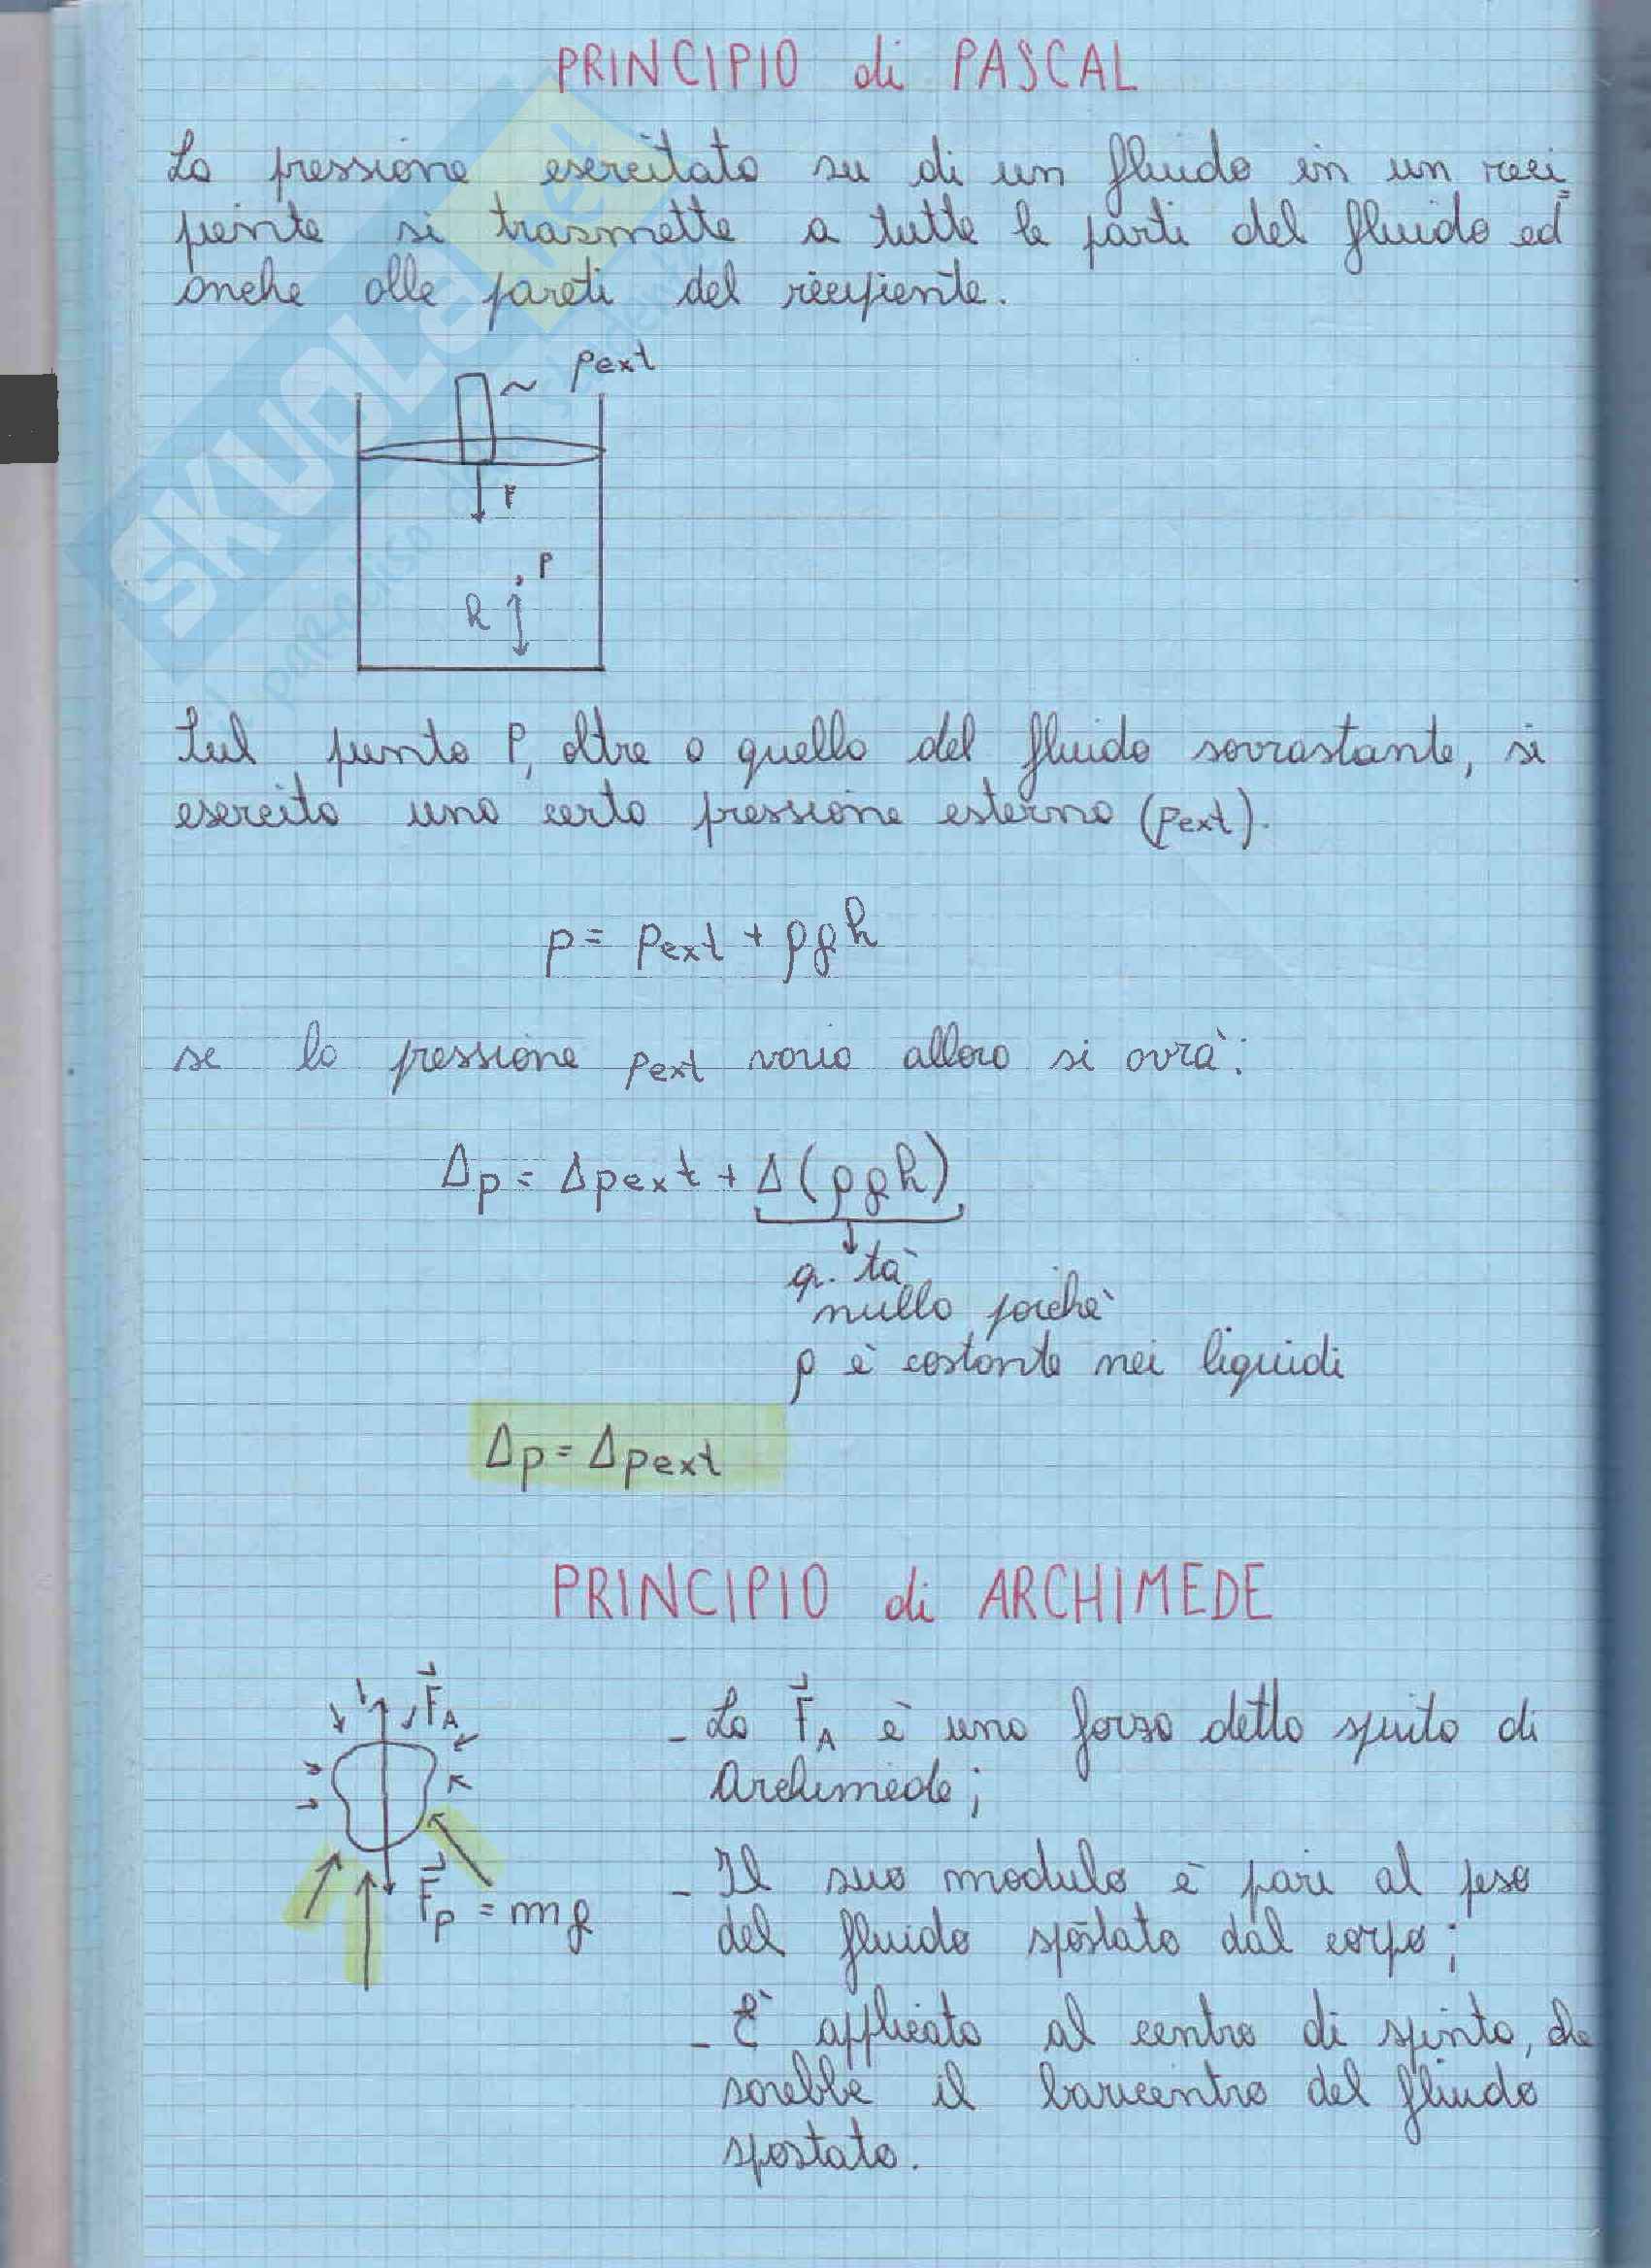 PRINCIPIO di PASCAL
La pressione esercitata su di un fluido in un reci=
piente si trasmette a tutte le parti del fluido ed
anche alle pareti del recipiente.
pext
F
P
h
Sul punto P, oltre a quella del fluido sovrastante, si
esercita una certa pressione esterna (pext).
p = pext + ρgh
se la pressione pext varia allora si avrà:
Δp = Δpext + Δ(ρgh)
q.tà
nulla poichè
ρ è costante nei liquidi
Δp = Δpext
PRINCIPIO di ARCHIMEDE
F⃗A
F⃗p = mg
- La F⃗A è una forza detta spinta di
Archimede;
- Il suo modulo è pari al peso
del fluido spostato dal corpo;
- È applicata al centro di spinta, che
sarebbe il baricentro del fluido
spostato.
SKUOLA.net
il paradiso dello studente